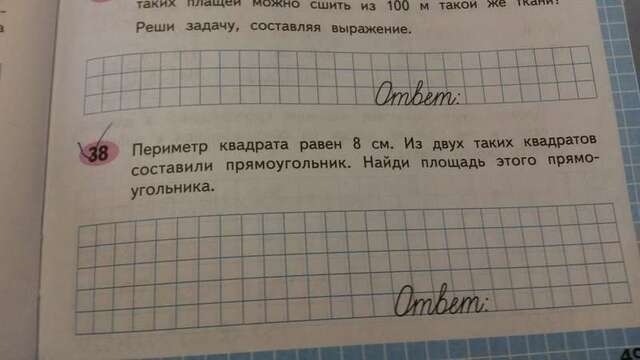 таких плащей можно сшить из 100 м такой же ткани?
Реши задачу, составляя выражение.
Ответ:
38 Периметр квадрата равен 8 см. Из двух таких квадратов
составили прямоугольник. Найди площадь этого прямо-
угольника.
Ответ: